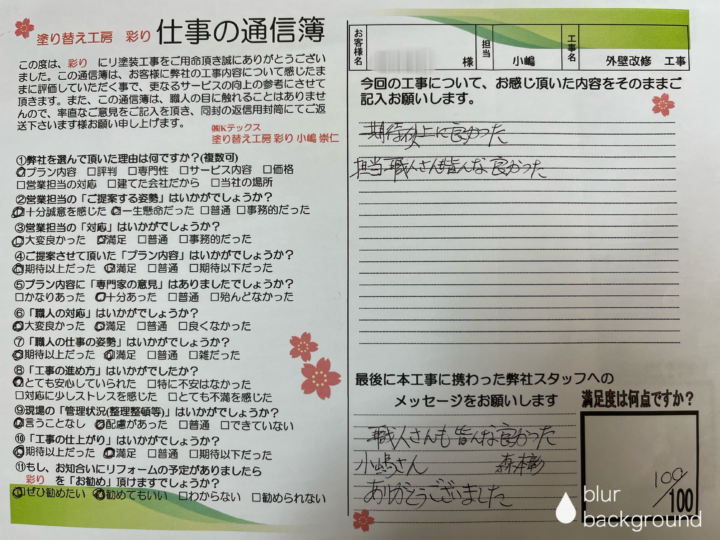 塗り替え工房 彩り 仕事の通信簿
この度は、彩り にリ塗装工事をご用命頂き誠にありがとうござい
ました。この通信簿は、お客様に弊社の工事内容について感じたま
まに評価していただく事で、更なるサービスの向上の参考にさせて
頂きます。また、この通信簿は、職人の目に触れることはありませ
んので、率直なご意見をご記入を頂き、同封の返信用封筒にてご返
送下さいます様お願い申し上げます。
㈱Kテックス
塗り替え工房 彩り 小嶋 崇仁
①弊社を選んで頂いた理由は何ですか？(複数可)
□プラン内容 □評判 □専門性 □サービス内容 □価格
□営業担当の対応 □建てた会社だから □当社の場所
②営業担当の「ご提案する姿勢」はいかがでしょうか？
□十分誠意を感じた □一生懸命だった □普通 □事務的だった
③営業担当の「対応」はいかがでしょうか？
□大変良かった □満足 □普通 □事務的だった
④ご提案させて頂いた「プラン内容」はいかがでしょうか？
□期待以上だった □満足 □普通 □期待以下だった
⑤プラン内容に「専門家の意見」はありましたでしょうか？
□かなりあった □十分あった □普通 □殆んどなかった
⑥「職人の対応」はいかがでしょうか？
□大変良かった □満足 □普通 □良くなかった
⑦「職人の仕事の姿勢」はいかがでしょうか？
□期待以上だった □満足 □普通 □雑だった
⑧「工事の進め方」はいかがでしたか？
□とても安心していられた □特に不安はなかった
□対応に少しストレスを感じた □とても不満を感じた
⑨現場の「管理状況(整理整頓等)」はいかがでしょうか？
□言うことなし □配慮があった □普通 □できていない
⑩「工事の仕上がり」はいかがでしょうか？
□期待以上だった □満足 □普通 □期待以下だった
⑪もし、お知合いにリフォームの予定がありましたら
彩り を「お勧め」頂けますでしょうか？
□ぜひ勧めたい □勧めてもいい □わからない □勧められない
お客様名 様 担当 小嶋 工事名 外壁改修 工事
今回の工事について、お感じ頂いた内容をそのままご
記入お願いします。
期待以上に良かった
担当、職人さん皆んな良かった
最後に本工事に携わった弊社スタッフへの
メッセージをお願いします
職人さんも皆んな良かった
小嶋さん 森本彰
ありがとうございました
満足度は何点ですか？
100/100
blur
background